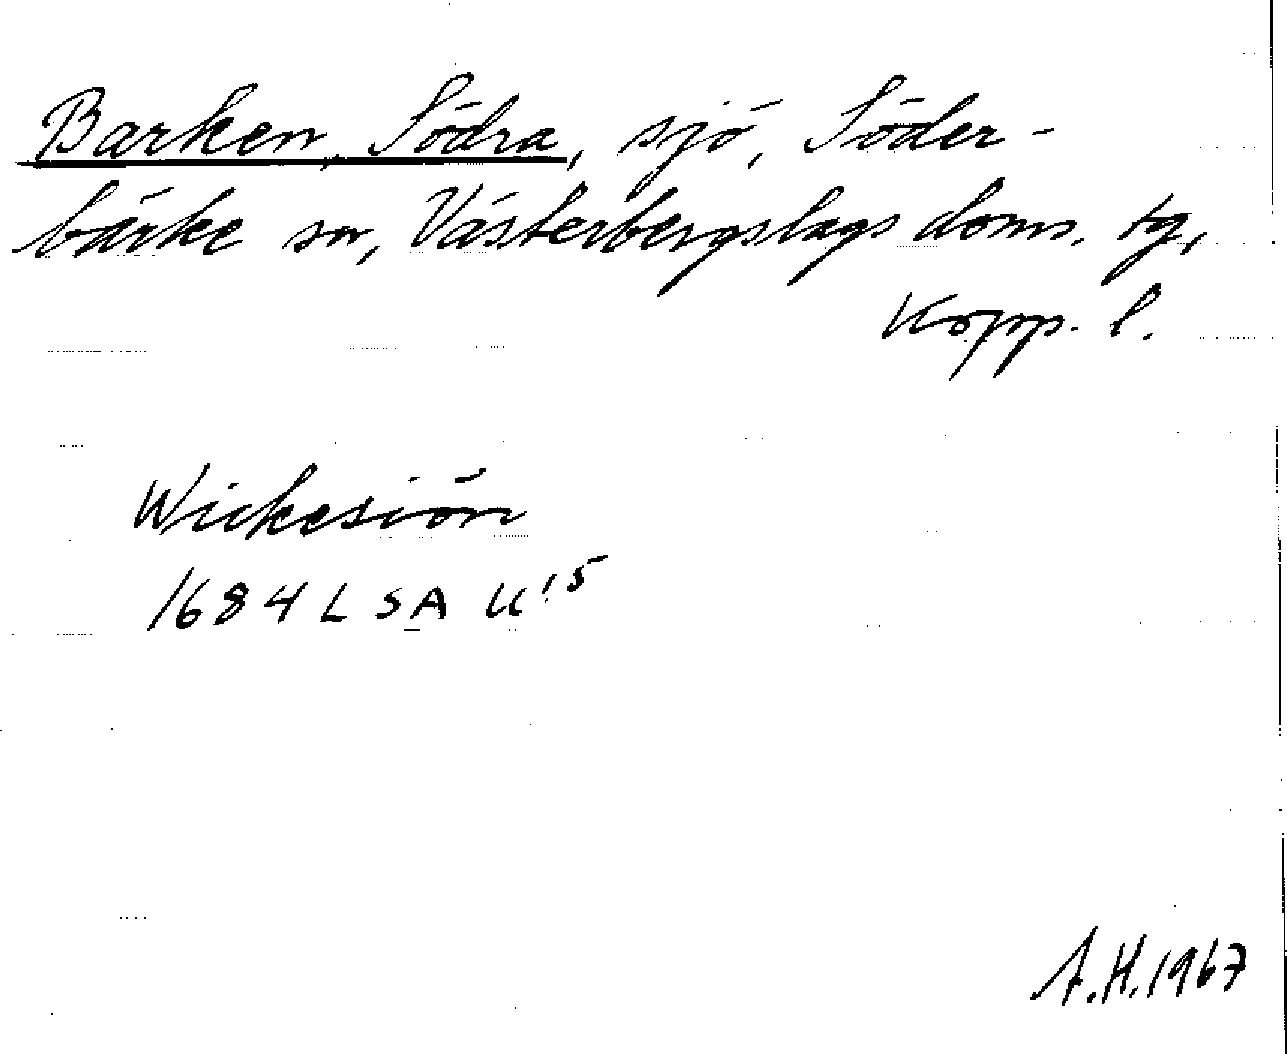 Barken, Södra, sjö, Söder-
bärke sn, Västerbergslags doms. tg,
Kopp. l.
Wickesiön
1684 LSA U:15
A.H. 1967